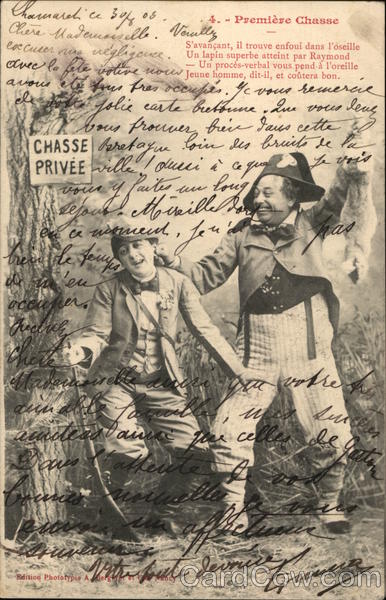 Chamarett ce 30/8 06
4. - Première Chasse
Chère Mademoiselle. Veuillez
excuser ma négligence
S'avançant, il trouve enfoui dans l'oseille
Un lapin superbe atteint par Raymond
— Un procès-verbal vous pend à l'oreille
Jeune homme, dit-il, et coûtera bon.
avec la fête votive nous
avons été tous très occupés. Je vous remercie
de votre jolie carte bretonne. Que vous devez
vous trouver bien dans cette
bretagne loin des bruits de la
ville! aussi à ce que je vois
vous y faites un long
séjour. Mireille dort
en ce moment, je n'ai pas
bien le temps
de m'en
occuper.
CHASSE
PRIVÉE
Chère
Mademoiselle ainsi que votre
aimable famille, mes
amitiés ainsi que celles de Gaston
Dans l'attente de vos
bonnes nouvelles je vous
envoie un affectueux
souvenir
Votre toute dévouée
Edition Photolypie A. Bergeret et Cie Nancy
CardCow.com